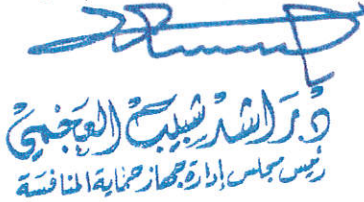 د. راشد شبيب العجمي
رئيس مجلس إدارة جهاز حماية المنافسة